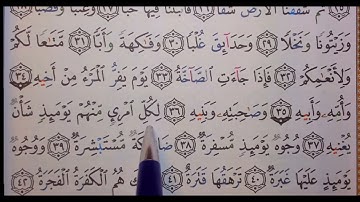 ثُمَّ شَقَقْنَا ٱلْأَرْضَ شَقًّا ٢٦ فَأَنۢبَتْنَا فِيهَا حَبًّا ٢٧ وَعِنَبًا وَقَضْبًا ٢٨
وَزَيْتُونًا وَنَخْلًا ٢٩ وَحَدَآئِقَ غُلْبًا ٣٠ وَفَٰكِهَةً وَأَبًّا ٣١ مَّتَٰعًا لَّكُمْ
وَلِأَنْعَٰمِكُمْ ٣٢ فَإِذَا جَآءَتِ ٱلصَّآخَّةُ ٣٣ يَوْمَ يَفِرُّ ٱلْمَرْءُ مِنْ أَخِيهِ ٣٤
وَأُمِّهِۦ وَأَبِيهِ ٣٥ وَصَٰحِبَتِهِۦ وَبَنِيهِ ٣٦ لِكُلِّ ٱمْرِئٍ مِّنْهُمْ يَوْمَئِذٍ شَأْنٌ
يُغْنِيهِ ٣٧ وُجُوهٌ يَوْمَئِذٍ مُّسْفِرَةٌ ٣٨ ضَاحِكَةٌ مُّسْتَبْشِرَةٌ ٣٩ وَوُجُوهٌ
يَوْمَئِذٍ عَلَيْهَا غَبَرَةٌ ٤٠ تَرْهَقُهَا قَتَرَةٌ ٤١ هُمُ ٱلْكَفَرَةُ ٱلْفَجَرَةُ ٤٢